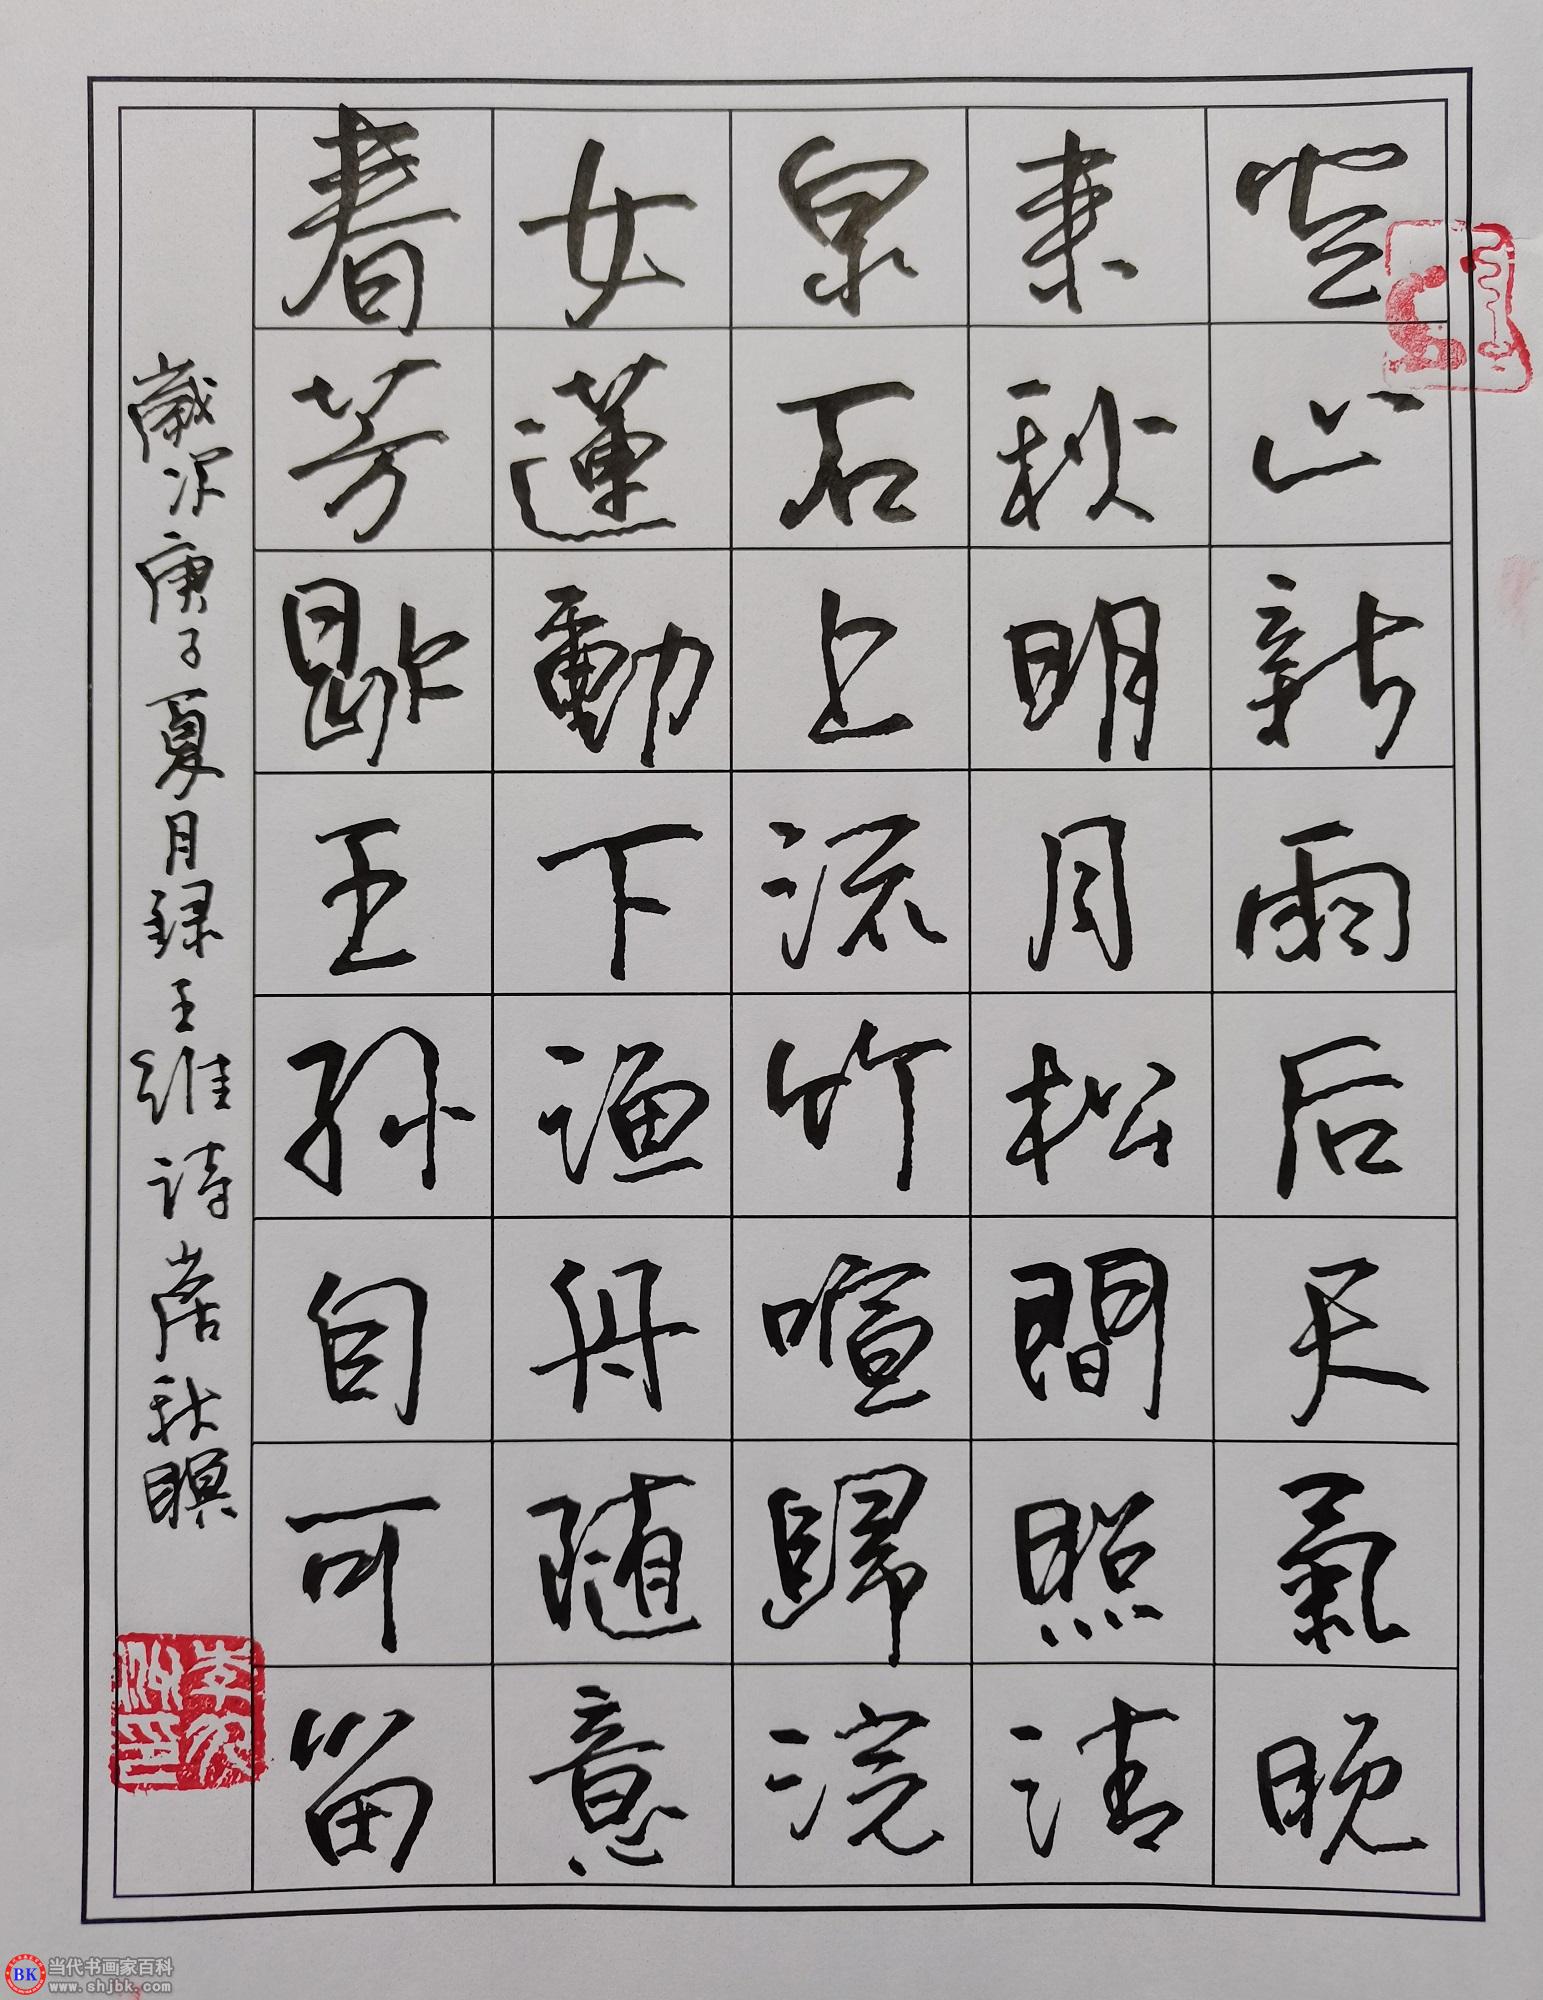 空山新雨后天氣晚
来秋明月松間照清
泉石上流竹喧歸浣
女蓮動下漁舟随意
春芳歇王孫自可留
歲次庚子夏月録王維詩山居秋暝
BK
当代书画家百科
www.shjbk.com